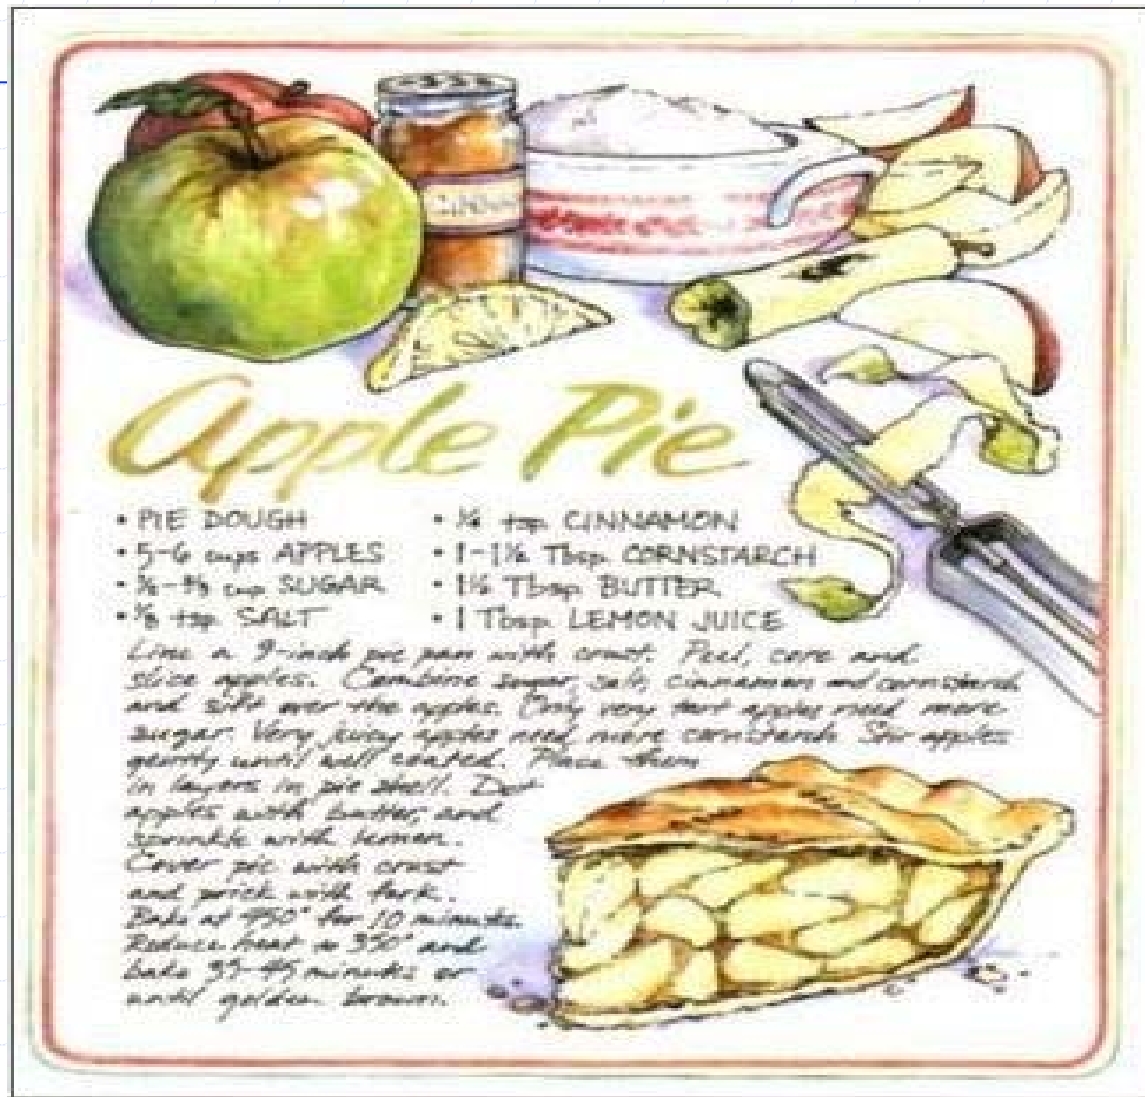 Apple Pie
• PIE DOUGH
• 5-6 cups APPLES
cup SUGAR
• ⅛ tsp SALT
tsp CINNAMON
• 1-1½ Tbsp CORNSTARCH
• 1½ Tbsp BUTTER
• 1 Tbsp LEMON JUICE
Line a 9-inch pie pan with crust. Peel, core and
slice apples. Combine sugar, salt, cinnamon and cornstarch
and sift over the apples. Only very tart apples need more
sugar. Very juicy apples need more cornstarch. Stir apples
gently until well coated. Place them
in layers in pie shell. Dot
apples with butter, and
sprinkle with lemon.
Cover pie with crust
and prick with fork.
Bake at 450° for 10 minutes.
Reduce heat to 350° and
bake 35-45 minutes or
until golden brown.